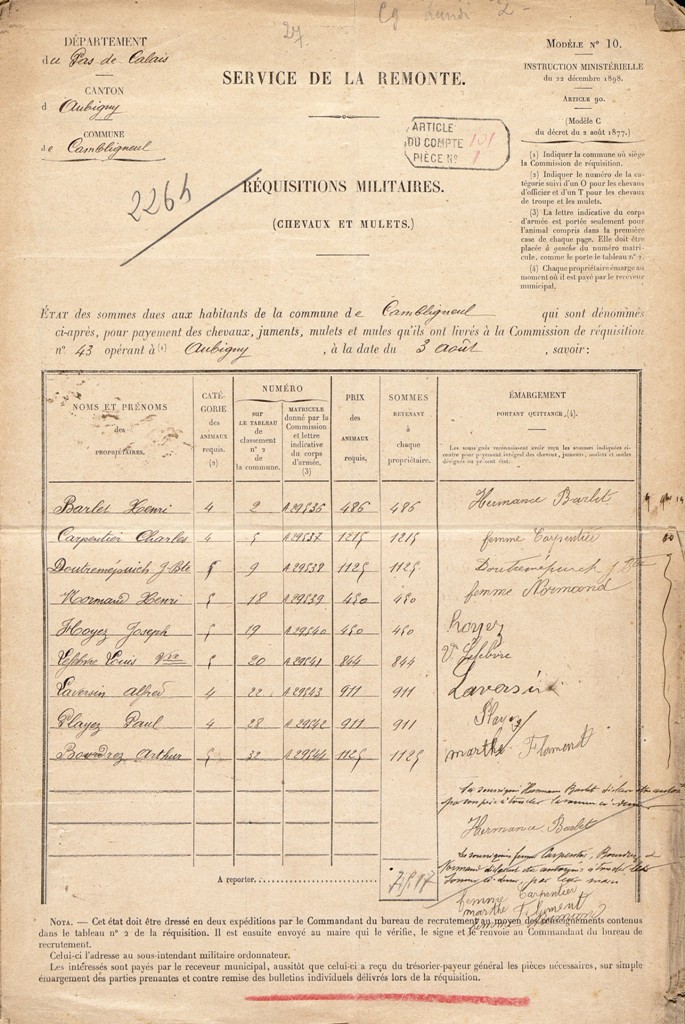 27.
Cg Lundi 2
DÉPARTEMENT
du Pas-de-Calais
CANTON
d Aubigny
COMMUNE
de Cambligneul
SERVICE DE LA REMONTE.
ARTICLE
DU COMPTE 101
PIÈCE No 1
2264
RÉQUISITIONS MILITAIRES.
(CHEVAUX ET MULETS.)
MODÈLE N° 10.
INSTRUCTION MINISTÉRIELLE
du 22 décembre 1898.
ARTICLE 90.
(Modèle C
du décret du 2 août 1877.)
(1) Indiquer la commune où siège
la Commission de réquisition.
(2) Indiquer le numéro de la ca-
tégorie suivi d'un O pour les chevaux
d'officier et d'un T pour les chevaux
de troupe et les mulets.
(3) La lettre indicative du corps
d'armée est portée seulement pour
l'animal compris dans la première
case de chaque page. Elle doit être
placée à gauche du numéro matri-
cule, comme le porte le tableau n° 2.
(4) Chaque propriétaire émarge au
moment où il est payé par le receveur
municipal.
ÉTAT des sommes dues aux habitants de la commune de Cambligneul qui sont dénommés
ci-après, pour payement des chevaux, juments, mulets et mules qu'ils ont livrés à la Commission de réquisition
n° 43 opérant à (1) Aubigny, à la date du 3 août, savoir:
NOMS ET PRÉNOMS
des
PROPRIÉTAIRES.
CATÉ-
GORIE
des
ANIMAUX
requis.
(2)
NUMÉRO
SUR
LE TABLEAU
de
classement
n° 2
de
la commune.
MATRICULE
donné par la
Commission
et lettre
indicative
du corps
d'armée.
(3)
PRIX
des
ANIMAUX
requis.
SOMMES
REVENANT
à
chaque
propriétaire.
ÉMARGEMENT
PORTANT QUITTANCE. (4).
Les soussignés reconnaissent avoir reçu les sommes indiquées ci-
contre pour payement intégral des chevaux, juments, mulets et mules
désignés au présent état.
Barlet Henri 4 2 A 29536 486 486 Hermance Barlet
Carpentier Charles 4 5 A 29537 1215 1215 femme Carpentier
J-Bte 5 9 A 29538 1125 1125
Normand Henri 5 18 A 29539 450 450 femme Normand
Hoyez Joseph 5 19 A 29540 450 450 hoyez
Lefebvre Louis Vve 5 20 A 29541 844 844 V. Lefebvre
Laversin Alfred 4 22 A 29543 911 911 Laversin
Playez Paul 4 28 A 29542 911 911 Playez
Bourdrez Arthur 5 32 A 29544 1125 1125 marthe Flament
Hermance Barlet
A reporter. 7517
femme Carpentier
marthe Flament
femme Normand
NOTA. — Cet état doit être dressé en deux expéditions par le Commandant du bureau de recrutement au moyen des renseignements contenus
dans le tableau n° 2 de la réquisition. Il est ensuite envoyé au maire qui le vérifie, le signe et le renvoie au Commandant du bureau de
recrutement.
Celui-ci l'adresse au sous-intendant militaire ordonnateur.
Les intéressés sont payés par le receveur municipal, aussitôt que celui-ci a reçu du trésorier-payeur général les pièces nécessaires, sur simple
émargement des parties prenantes et contre remise des bulletins individuels délivrés lors de la réquisition.